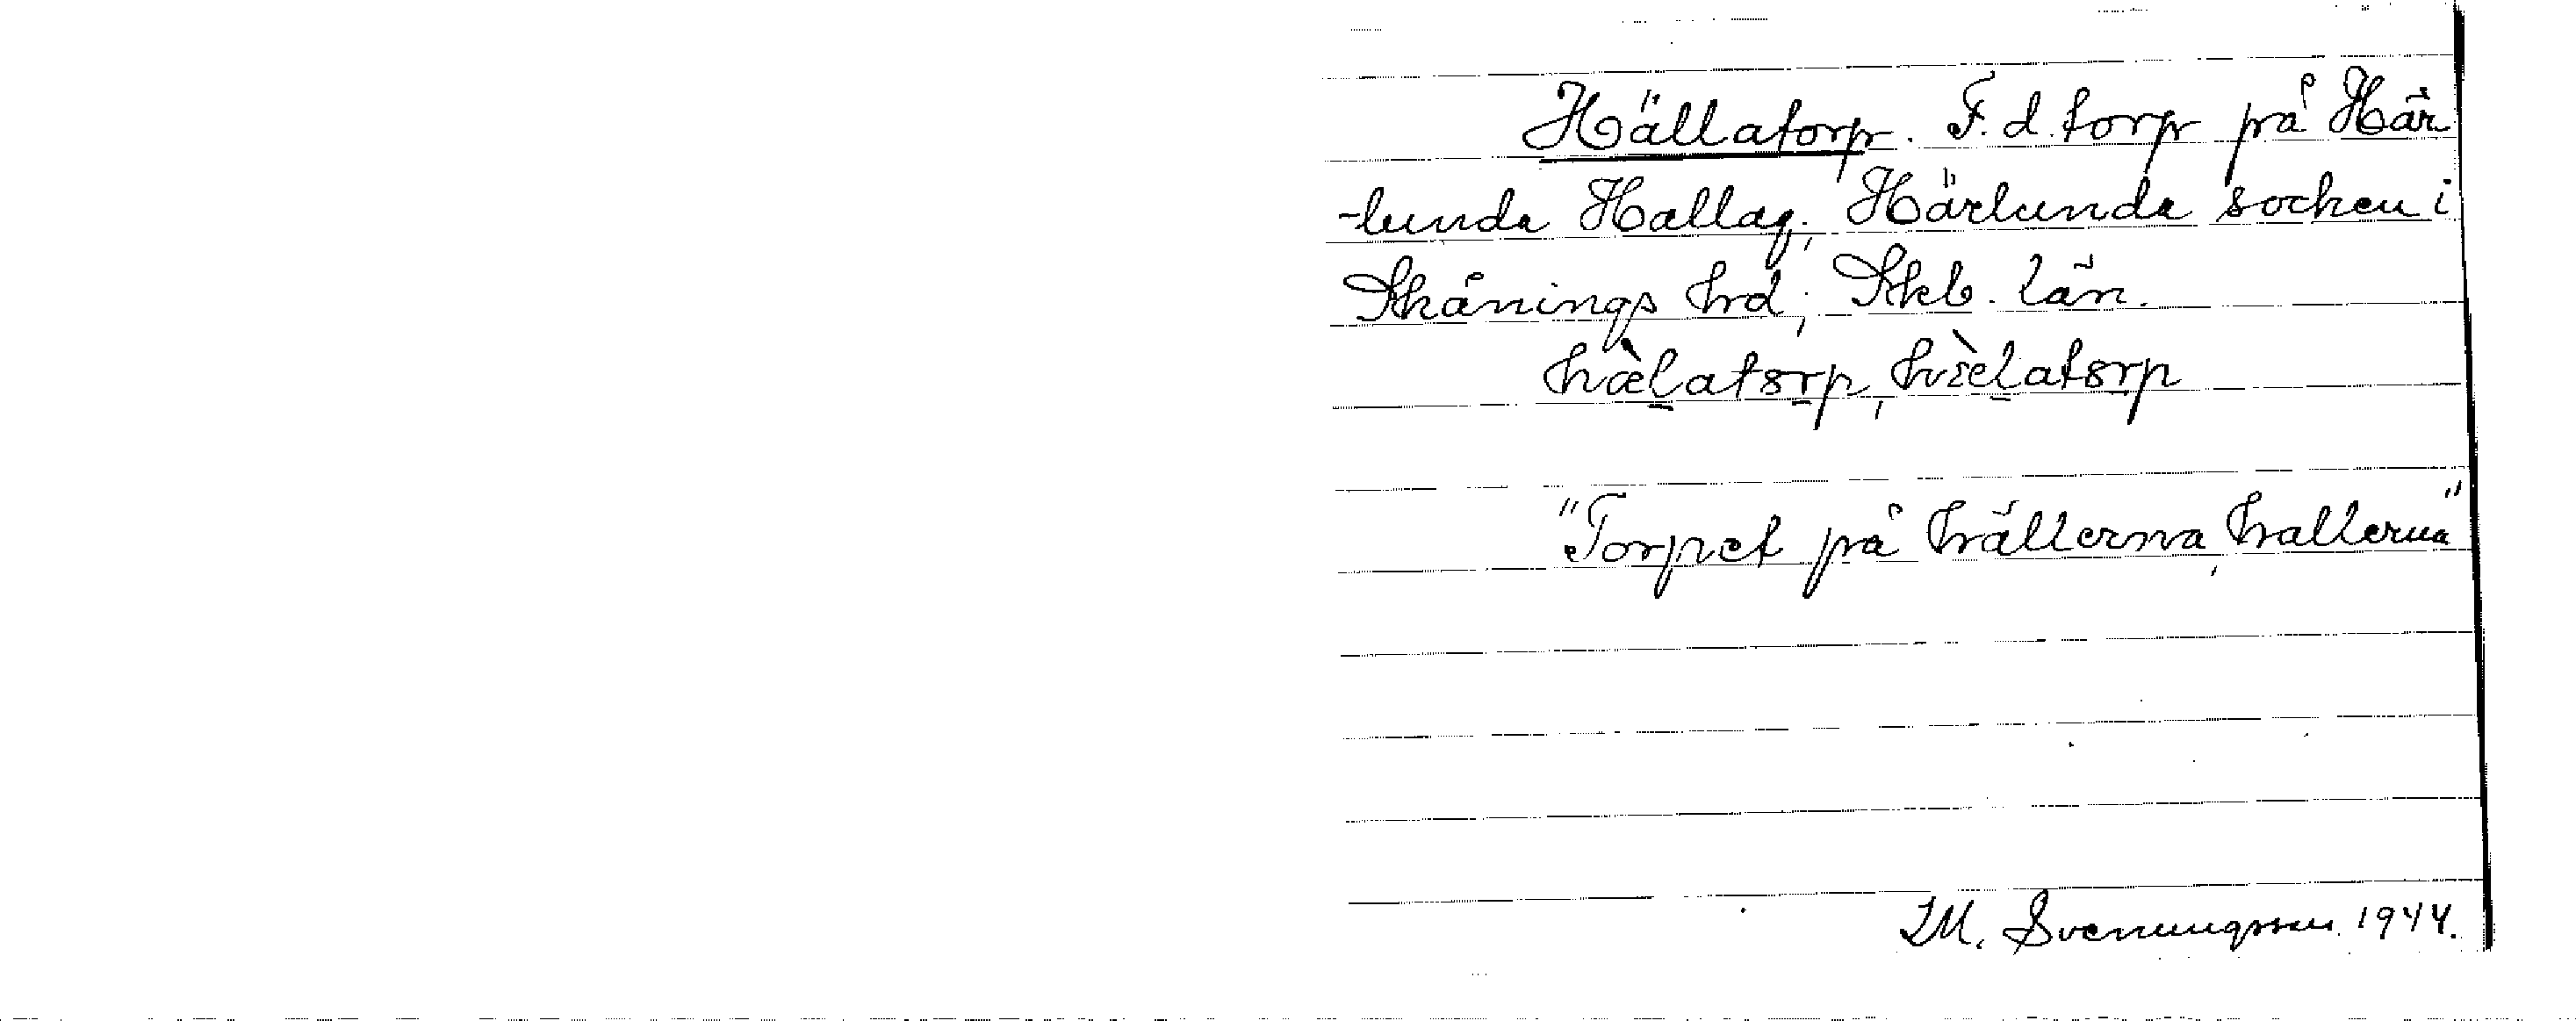 Hällatorp. F.d. torp på Här
-lunda Hallag., Härlunda socken i
Skånings hrd, Skb. län.
hælatorp, 
"Torpet på hällerna, hallerna"
M. Svenungsson 1944.